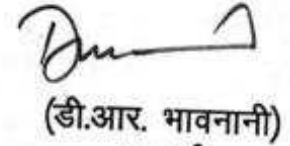 (डी.आर. भावनानी)